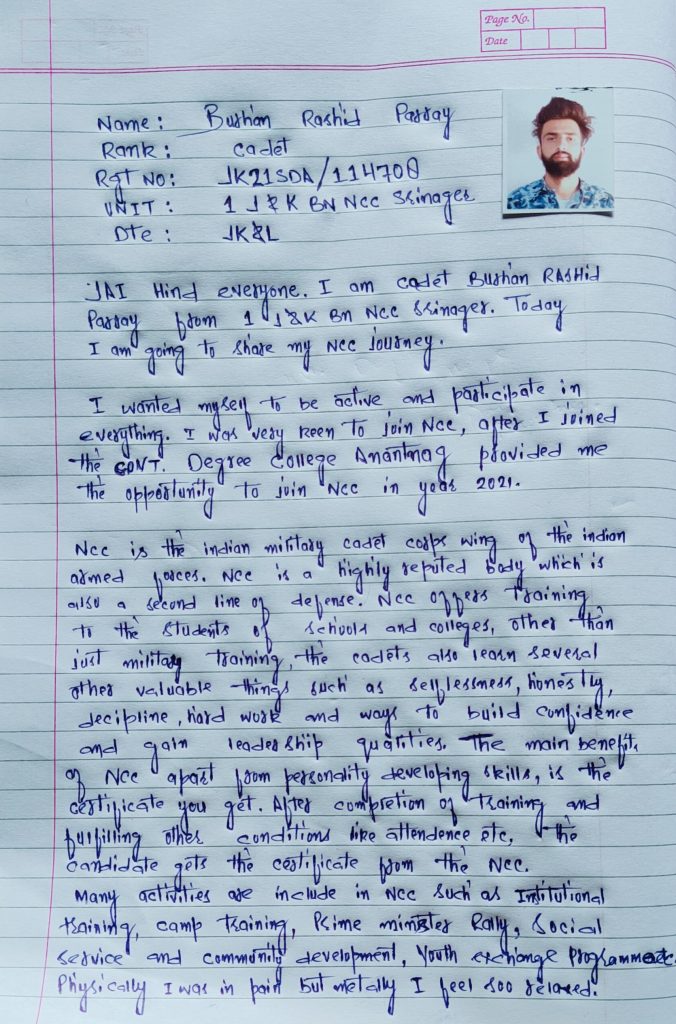 Page No.
Date
Name: Burhan Rashid Parray
Rank: cadet
Rgt No: JK21SDA/114708
UNIT: 1 J&K BN NCC Srinager
Dte: JK&L
JAI Hind everyone. I am cadet Burhan RASHid
Parray from 1 J&K Bn NCC Srinager. Today
I am going to share my NCC journey.
I wanted myself to be active and participate in
everything. I was very keen to join NCC, after I joined
the GOVT. Degree College Anantnag provided me
the opportunity to join NCC in year 2021.
NCC is the indian military cadet corps wing of the indian
armed forces. NCC is a highly reputed body which is
also a second line of defense. NCC offers training
to the students of schools and colleges, other than
just military training, the cadets also learn several
other valuable things such as selflessness, honestly,
decipline, hard work and ways to build confidence
and gain leadership qualities. The main benefits
of NCC apart from personality developing skills, is the
certificate you get. After completion of training and
fulfilling other conditions like attendence etc, the
candidate gets the certificate from the NCC.
Many activities are include in NCC such as Institutional
training, camp training, Prime minister Rally, Social
service and community development, Youth exchange Programme etc.
Physically I was in pain but metally I feel soo relaxed.